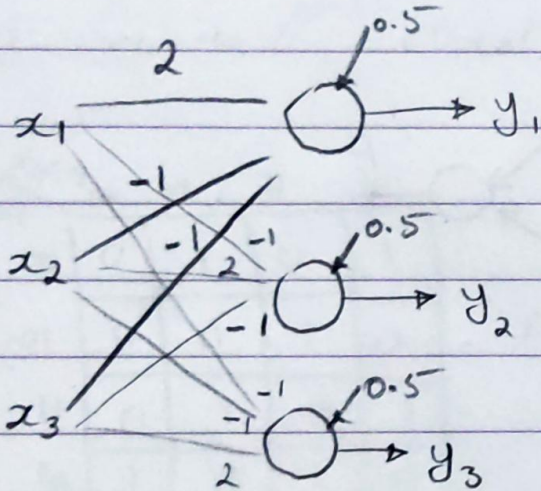 0.5
2
x₁ y₁
-1
-1 -1 0.5
x₂ 2 y₂
-1
-1 0.5
x₃ -1
2 y₃